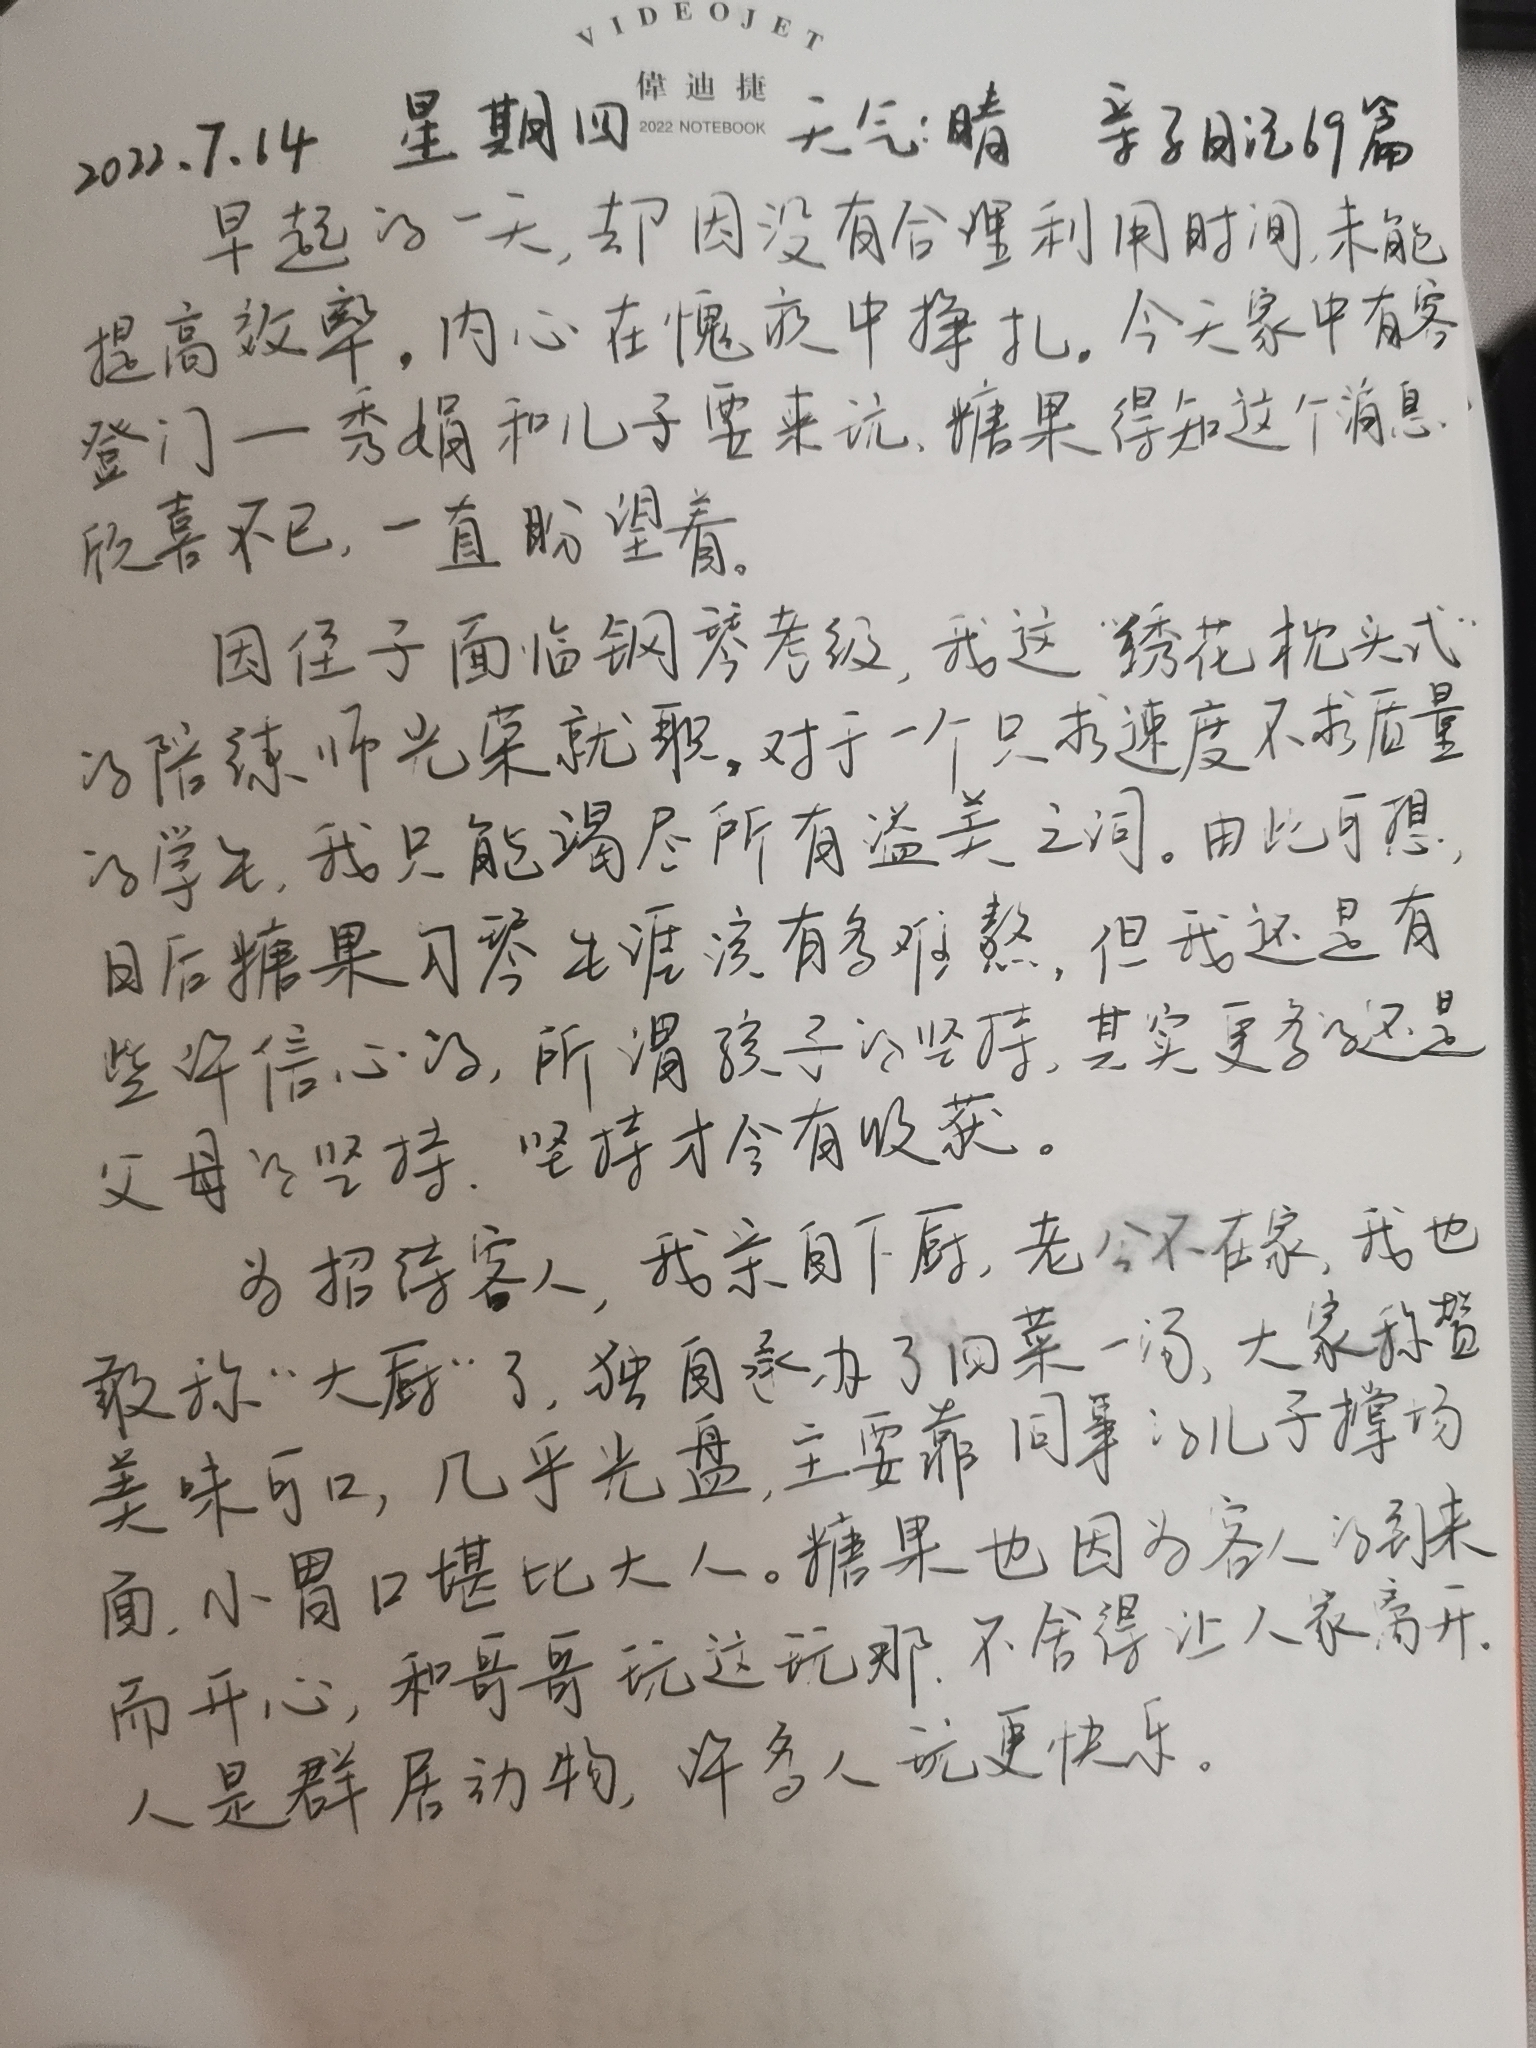 VIDEOJET
偉迪捷
2022 NOTEBOOK
2022.7.14 星期四 天气:晴 亲子日记69篇
早起的一天,却因没有合理利用时间,未能
提高效率。内心在愧疚中挣扎。今天家中有客
登门一秀娟和儿子要来玩、糖果得知这个消息
欣喜不已,一直盼望着。
因侄子面临钢琴考级,我这“绣花枕头式”
的陪练师光荣就职。对于一个只求速度不求质量
的学生,我只能竭尽所有溢美之词。由此可想,
日后糖果习琴生涯该有多难熬,但我还是有
些许信心的,所谓孩子的坚持,其实更多的还是
父母的坚持、坚持才会有收获。
为招待客人,我亲自下厨,老公不在家,我也
敢称“大厨”了,独自承办了四菜一汤、大家称赞
美味可口,几乎光盘,主要靠同事的儿子撑场
面,小胃口堪比大人。糖果也因为客人的到来
而开心,和哥哥玩这玩那、不舍得让人家离开.
人是群居动物,许多人玩更快乐。